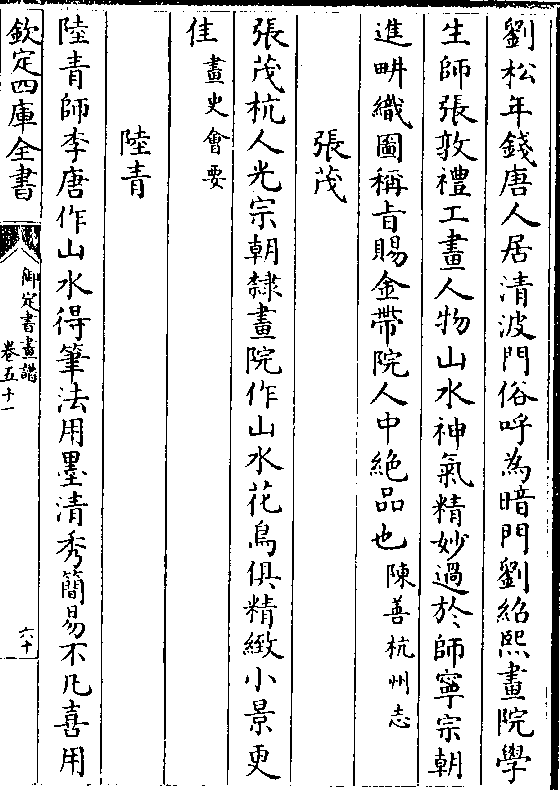 劉松年錢唐人居清波門俗呼為暗門劉紹熙畫院學
生師張敦禮工畫人物山水神氣精妙過於師寧宗朝
進畊織圖稱旨賜金帶院人中絶品也陳善杭州志
張茂
張茂杭人光宗朝隸畫院作山水花鳥俱精緻小景更
佳畫史會要
陸青
陸青師李唐作山水得筆法用墨清秀簡易不凡喜用
欽定四庫全書
御定書畫譜
卷五十一
六十